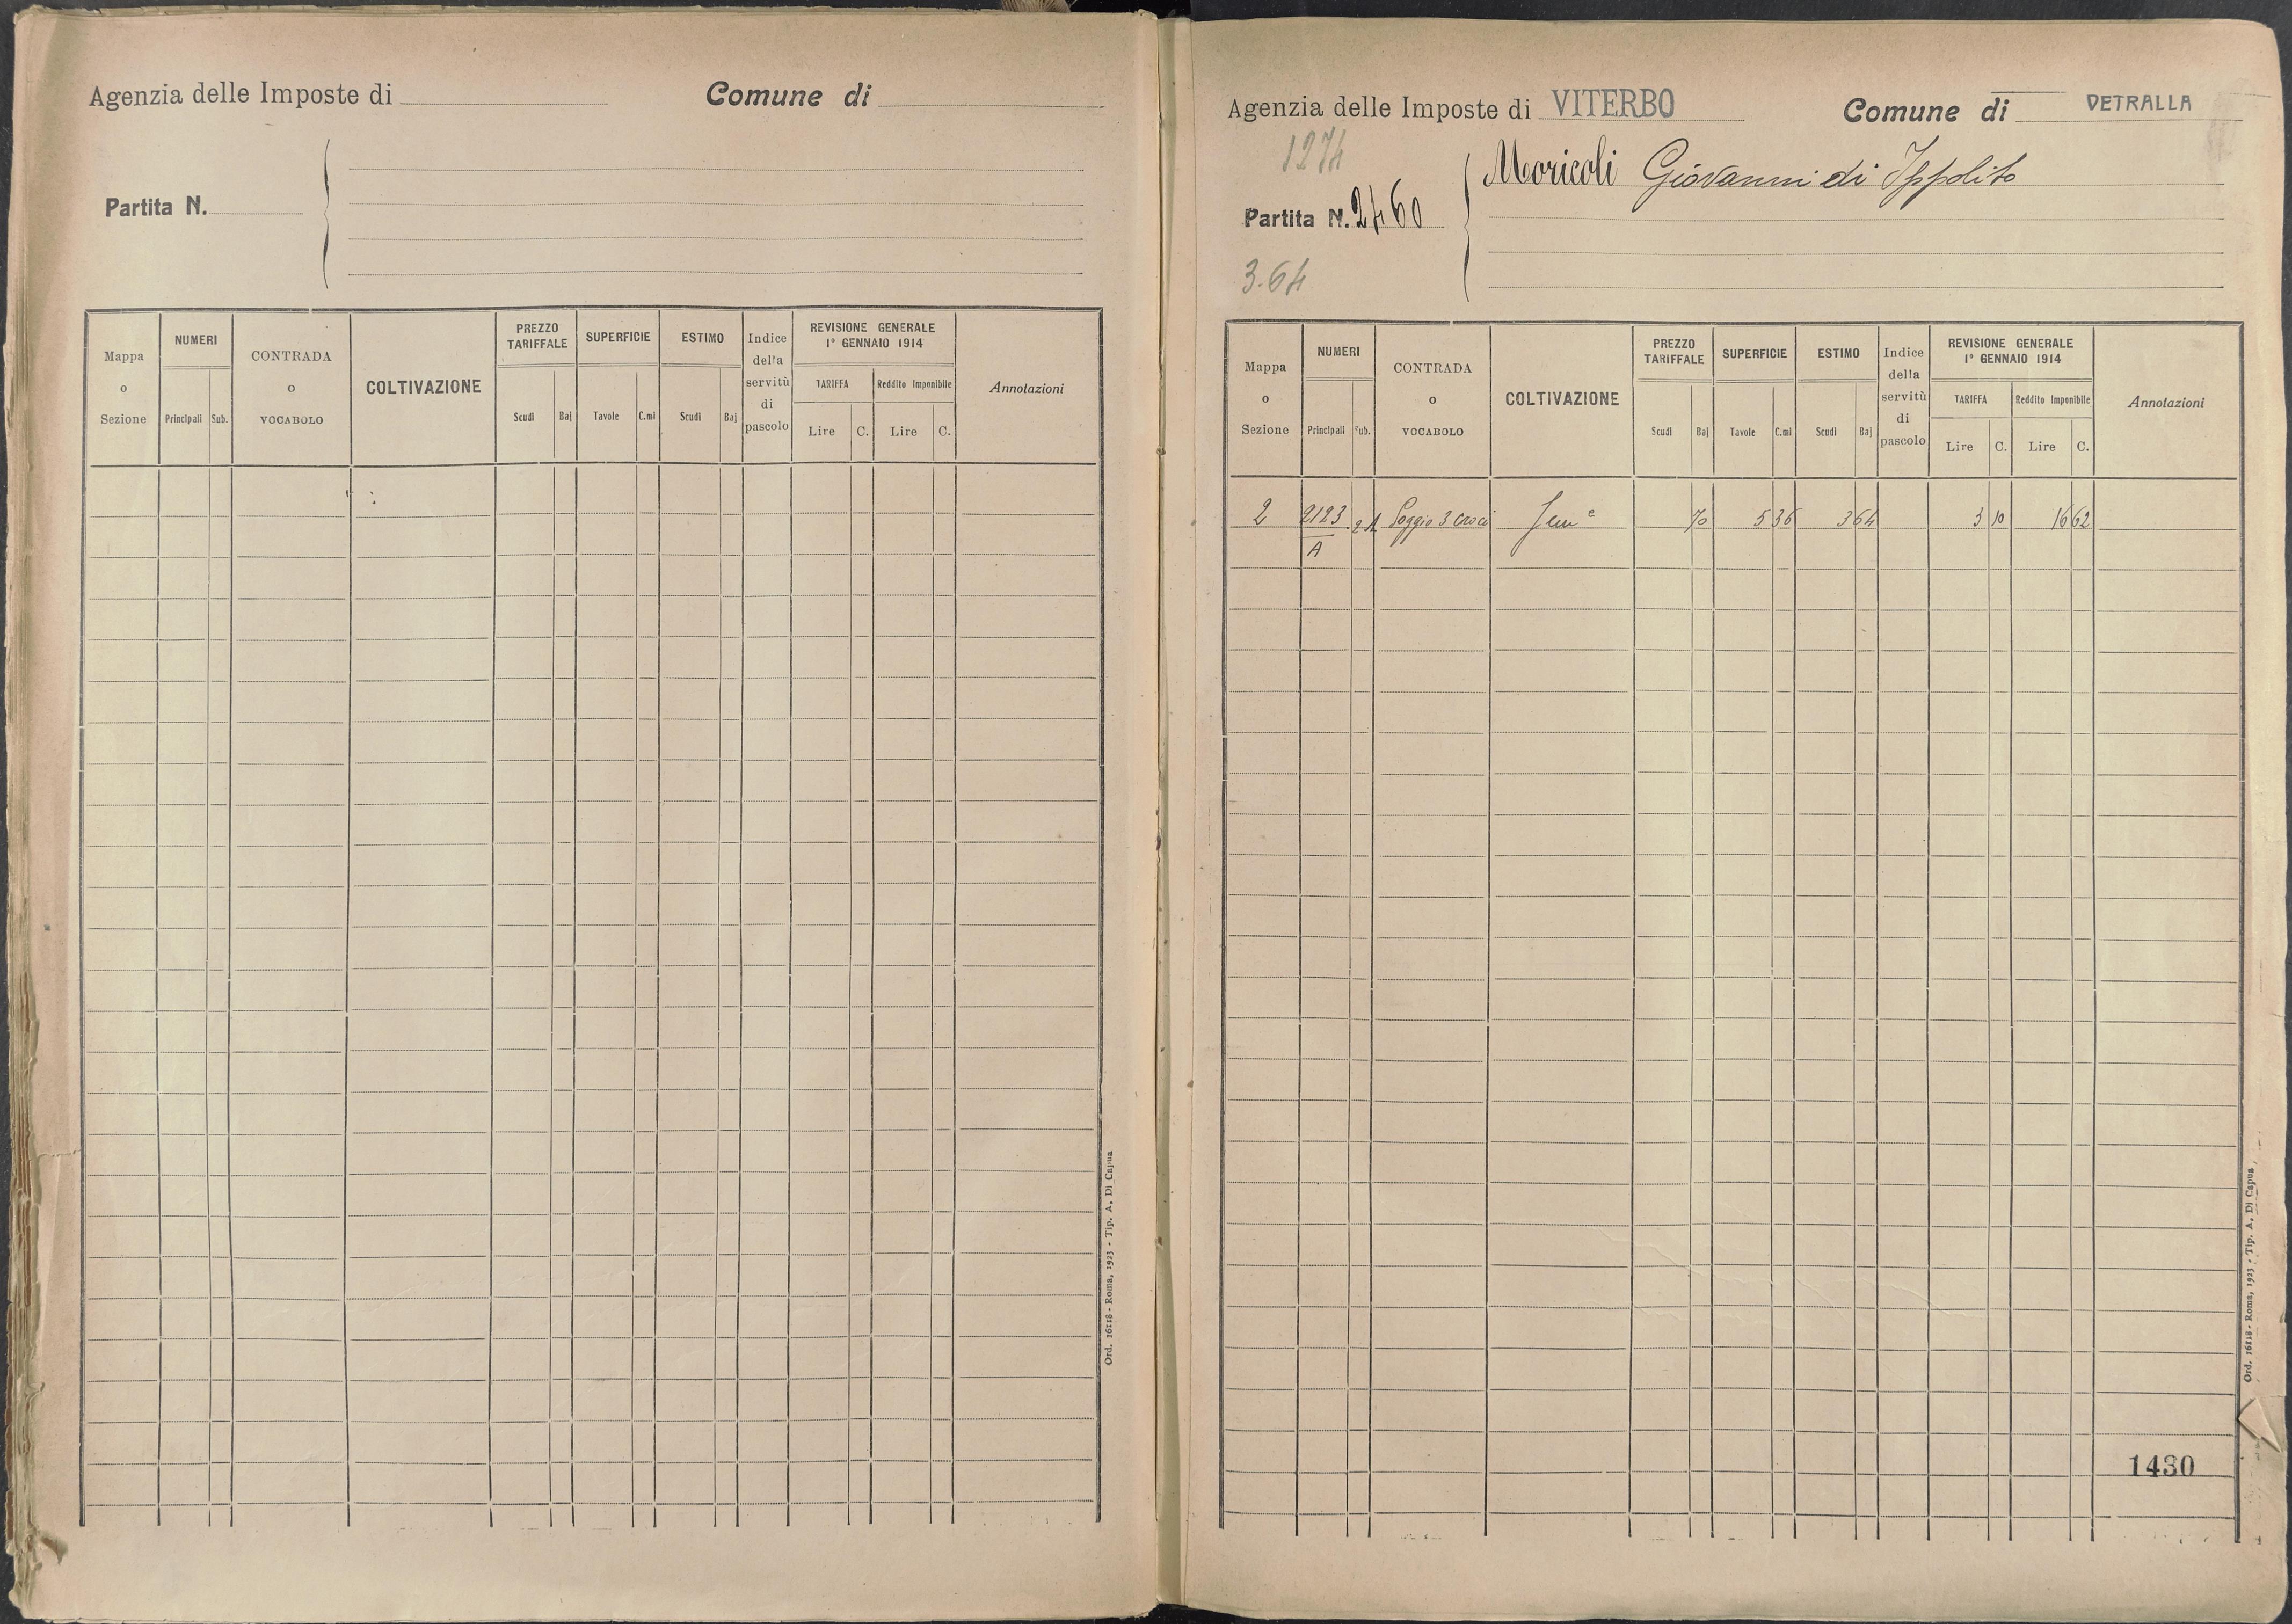 Agenzia delle Imposte di
Comune di
Partita N.
Mappa o Sezione
NUMERI
Principali
Sub.
CONTRADA o VOCABOLO
COLTIVAZIONE
PREZZO TARIFFALE
Scudi
Baj
SUPERFICIE
Tavole
C.mi
ESTIMO
Scudi
Baj
Indice della servitù di pascolo
REVISIONE GENERALE
1° GENNAIO 1914
TARIFFA
Reddito Imponibile
Lire
C.
Lire
C.
Annotazioni
Ord. 16118 - Roma, 1923 - Tip. A. Di Capua
Agenzia delle Imposte di VITERBO
Comune di VETRALLA
1274
Moricoli Giovanni di Ippolito
Partita N. 2460
3.64
Mappa o Sezione
NUMERI
Principali
Sub.
CONTRADA o VOCABOLO
COLTIVAZIONE
PREZZO TARIFFALE
Scudi
Baj
SUPERFICIE
Tavole
C.mi
ESTIMO
Scudi
Baj
Indice della servitù di pascolo
REVISIONE GENERALE
1° GENNAIO 1914
TARIFFA
Reddito Imponibile
Lire
C.
Lire
C.
Annotazioni
2 2123 Poggio 3 croci Sem e 70 5 36 3 64 3 10 16 62
A
1430
Ord. 16118 - Roma, 1923 - Tip. A. Di Capua